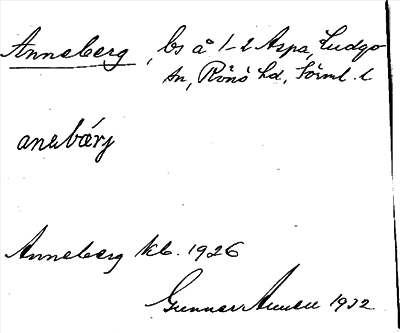 Anneberg, bs å 1-2 Aspa, Ludgo
sn, Rönö hd, Sörml. l
anəbärj
Anneberg kb. 1926
Gunnar 1932